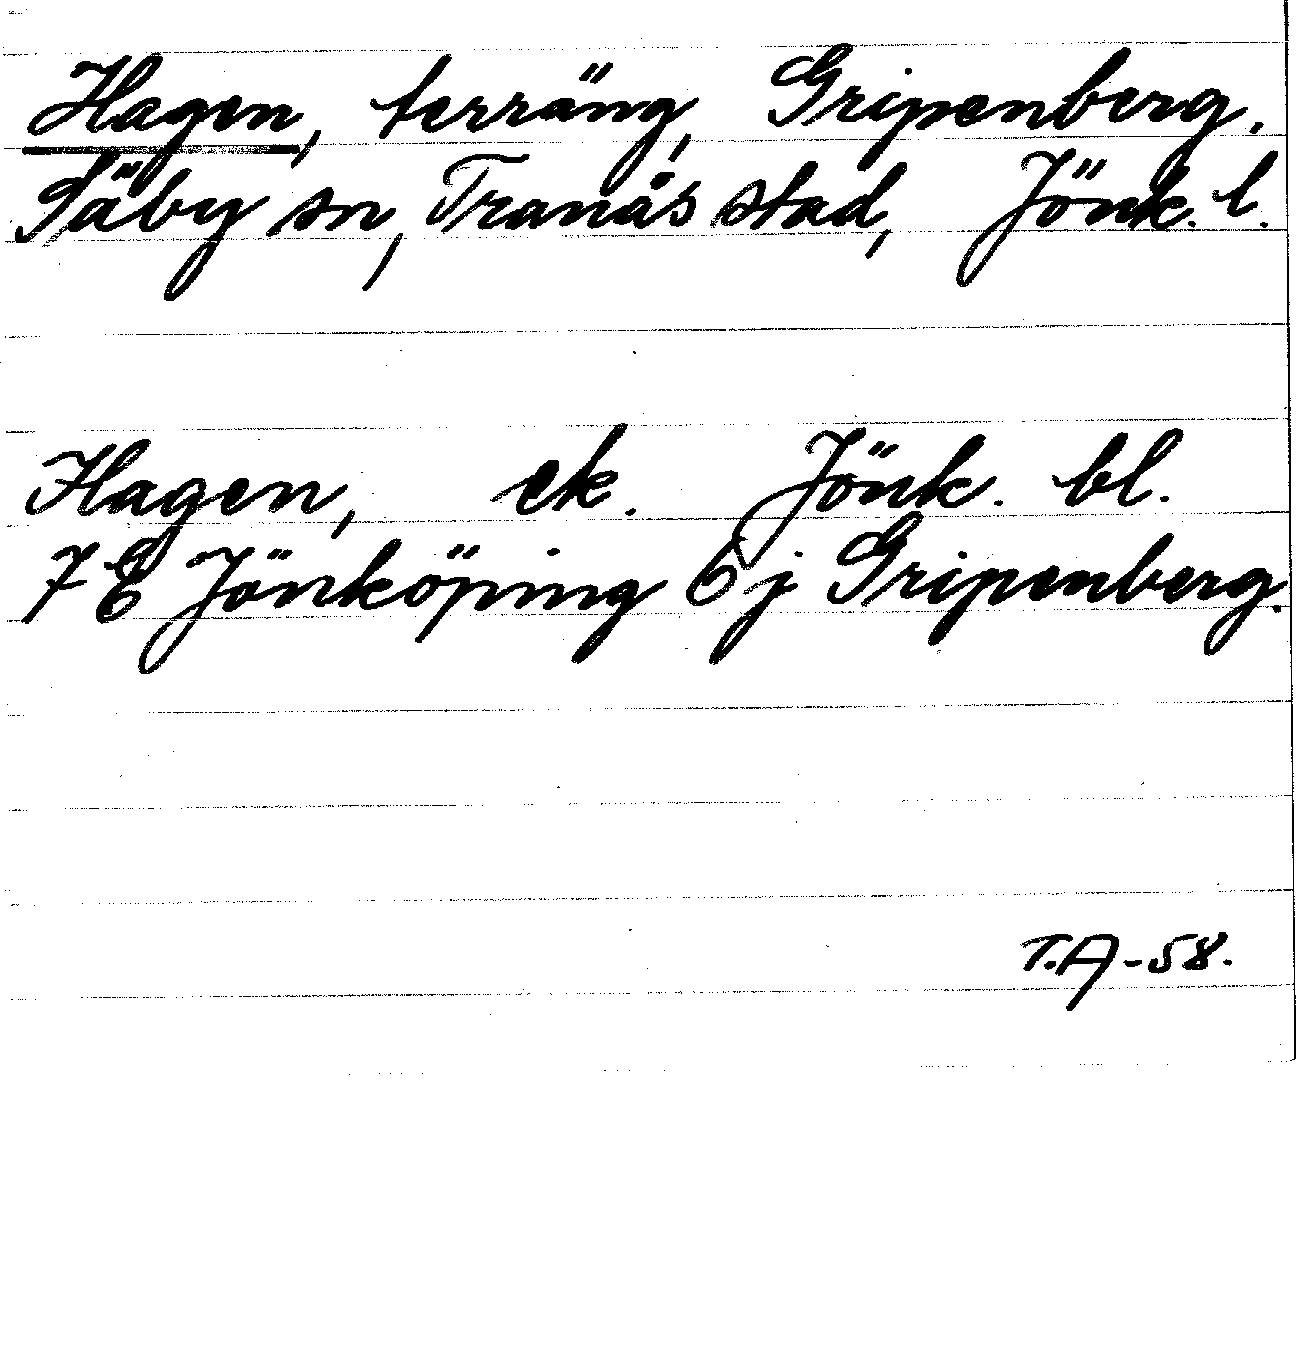 Hagen, terräng, Gripenberg.
Säby sn, Tranås stad, Jönk. l.
Hagen, ek. Jönk. bl.
7 E Jönköping 6 j Gripenberg.
T.A-58.